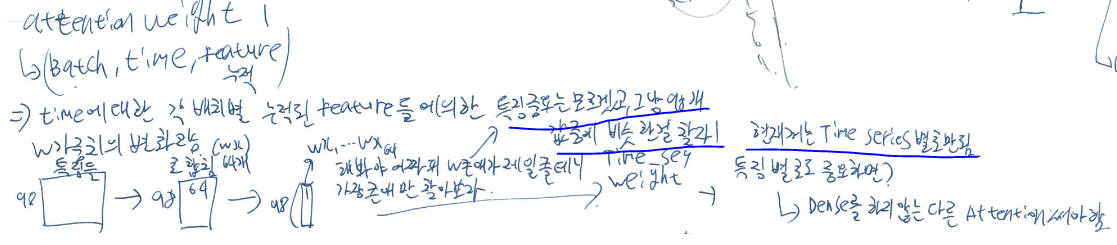 attention weight 1
↳(Batch, time, feature)
누적
⇒ time에 대한 각 배치별 누적된 feature들에 의한 특징중요는 모르겠고, 그냥 98개
W가중치의 변화라 (wx) wx, ... wx64 값중에 비슷한걸 찾자!
특징들 로 합침 64개 해봐야 어차피 W존재가 제일 클테니 Time_sey
가장 큰애만 찾아보자. weight
98 → 98 64 → 98 1 →
현재꺼는 Time series별로만 됨
특징별로도 중요하면?
↳ Dense를 하지 않는 다른 Attention 써야함